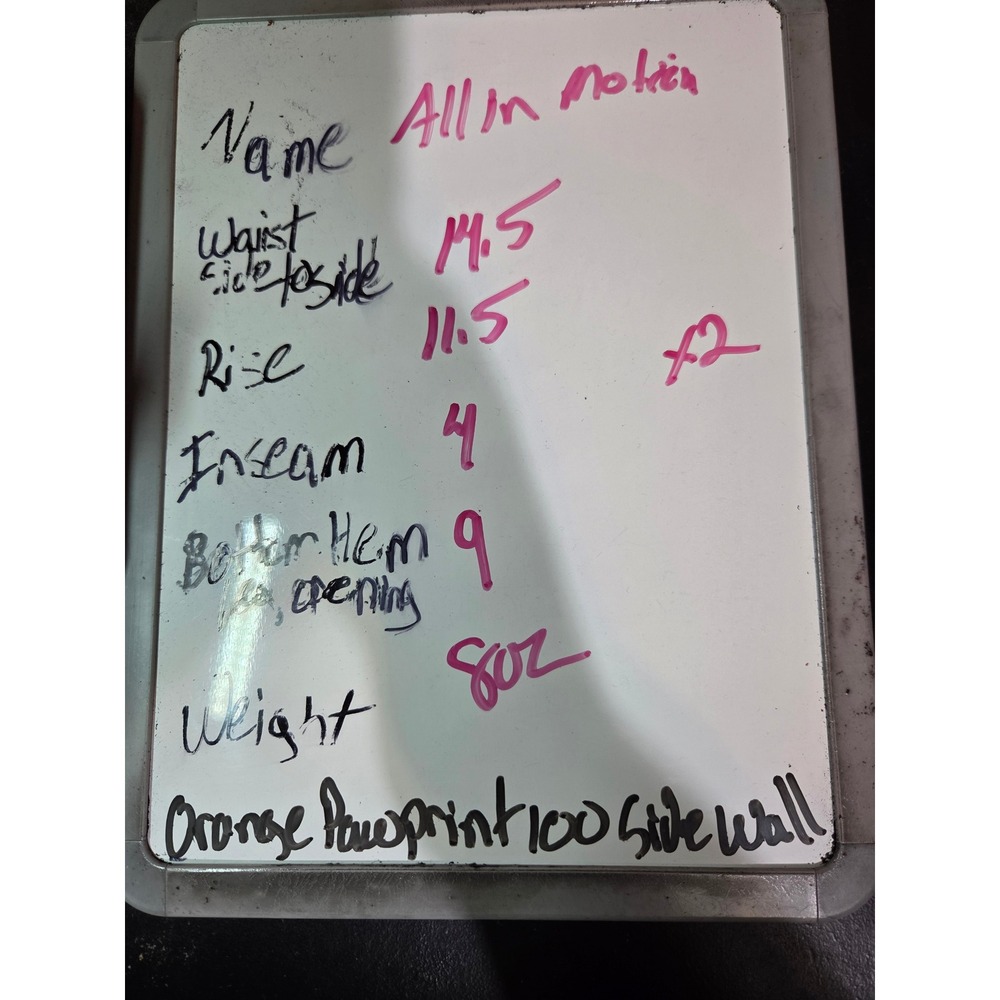 Name All in motion
Waist 14.5
Side to side
Rise 11.5
x2
Inseam 4
Bottom Hem 9
opening
Weight 8oz
Orange Pawprint 100 Side Wall